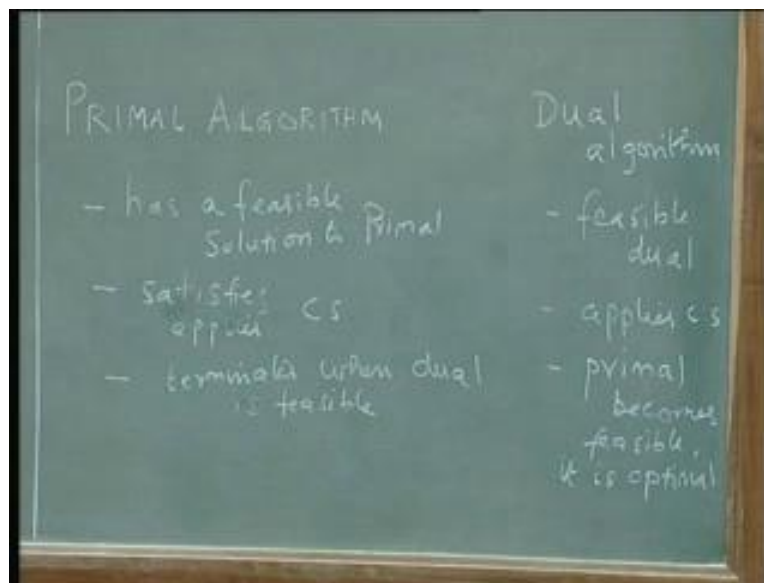 PRIMAL ALGORITHM
- has a feasible
Solution to Primal
- satisfies CS
applies
- terminates when dual
is feasible
Dual
algorithm
- feasible
dual
- applies CS
- primal
becomes
feasible,
it is optimal